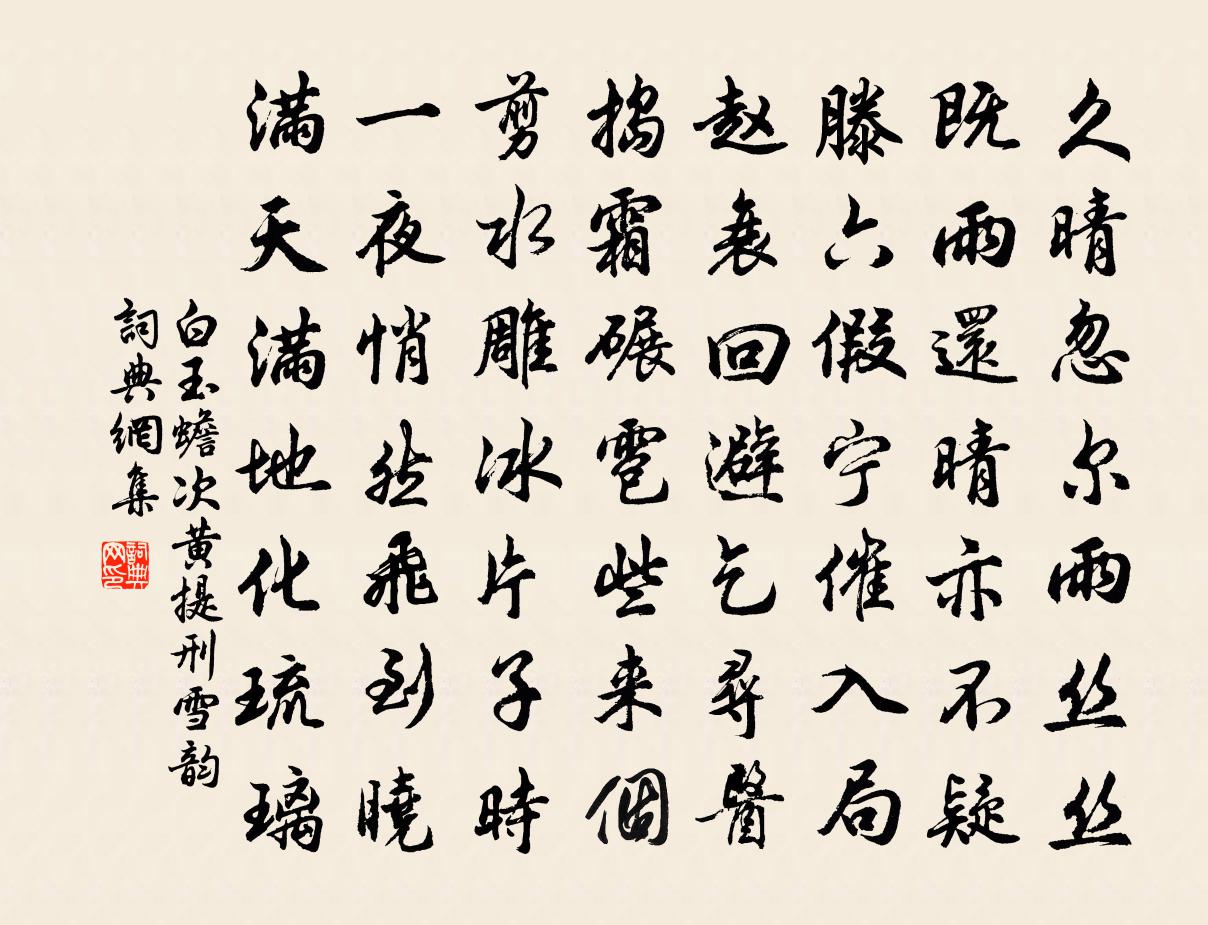 久晴忽尔雨丝丝
既雨還晴亦不疑
滕六假宁催入局
赵衰回避乞尋醫
搗霜碾雹些来個
剪水雕冰片子時
一夜悄然飛到曉
满天满地化琉璃
白玉蟾次黄提刑雪韵
詞典網集
詞典网印